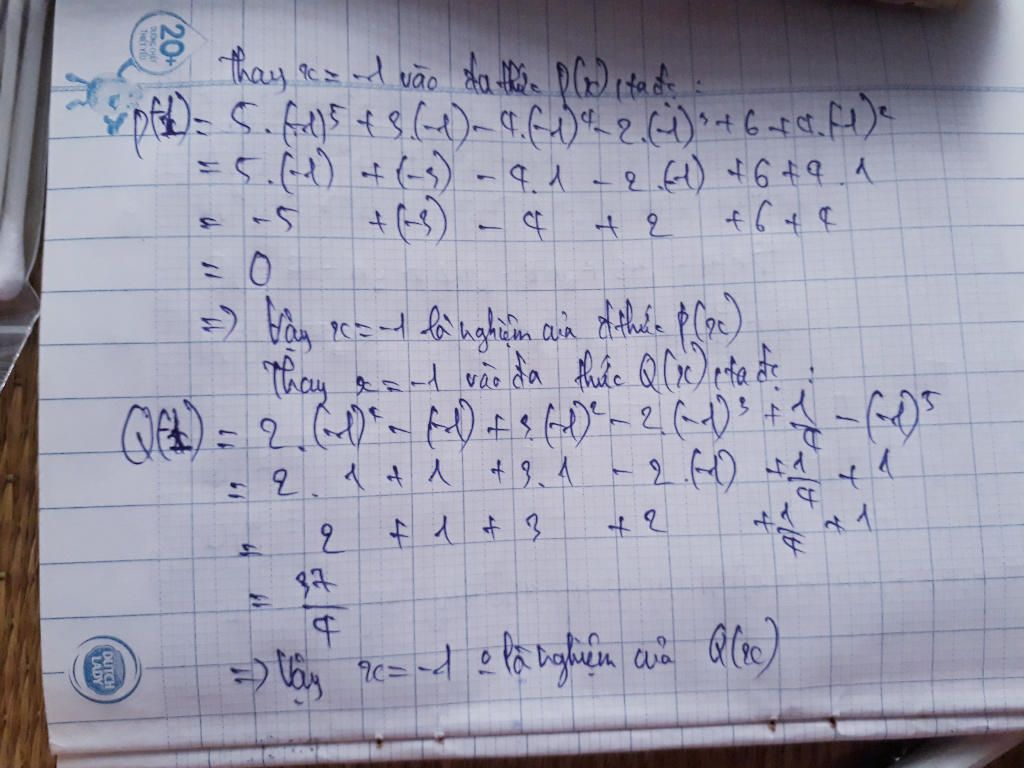 20+
DƯỠNG CHẤT
THIẾT YẾU
Thay x = -1 vào đa thức P(x), ta đc :
P(-1) = 5.(-1)⁵ + 3.(-1) - 4.(-1)⁴ - 2.(-1)³ + 6 + 4.(-1)²
= 5.(-1) + (-3) - 4.1 - 2.(-1) + 6 + 4.1
= -5 + (-3) - 4 + 2 + 6 + 4
= 0
=> Vậy x = -1 là nghiệm của đ thức P(x)
Thay x = -1 vào đa thức Q(x), ta đc :
Q(-1) = 2.(-1)⁴ - (-1) + 3.(-1)² - 2.(-1)³ + 1/4 - (-1)⁵
= 2.1 + 1 + 3.1 - 2.(-1) + 1/4 + 1
= 2 + 1 + 3 + 2 + 1/4 + 1
= 37/4
=> Vậy x = -1 o là nghiệm của Q(x)
DUTCH
LADY